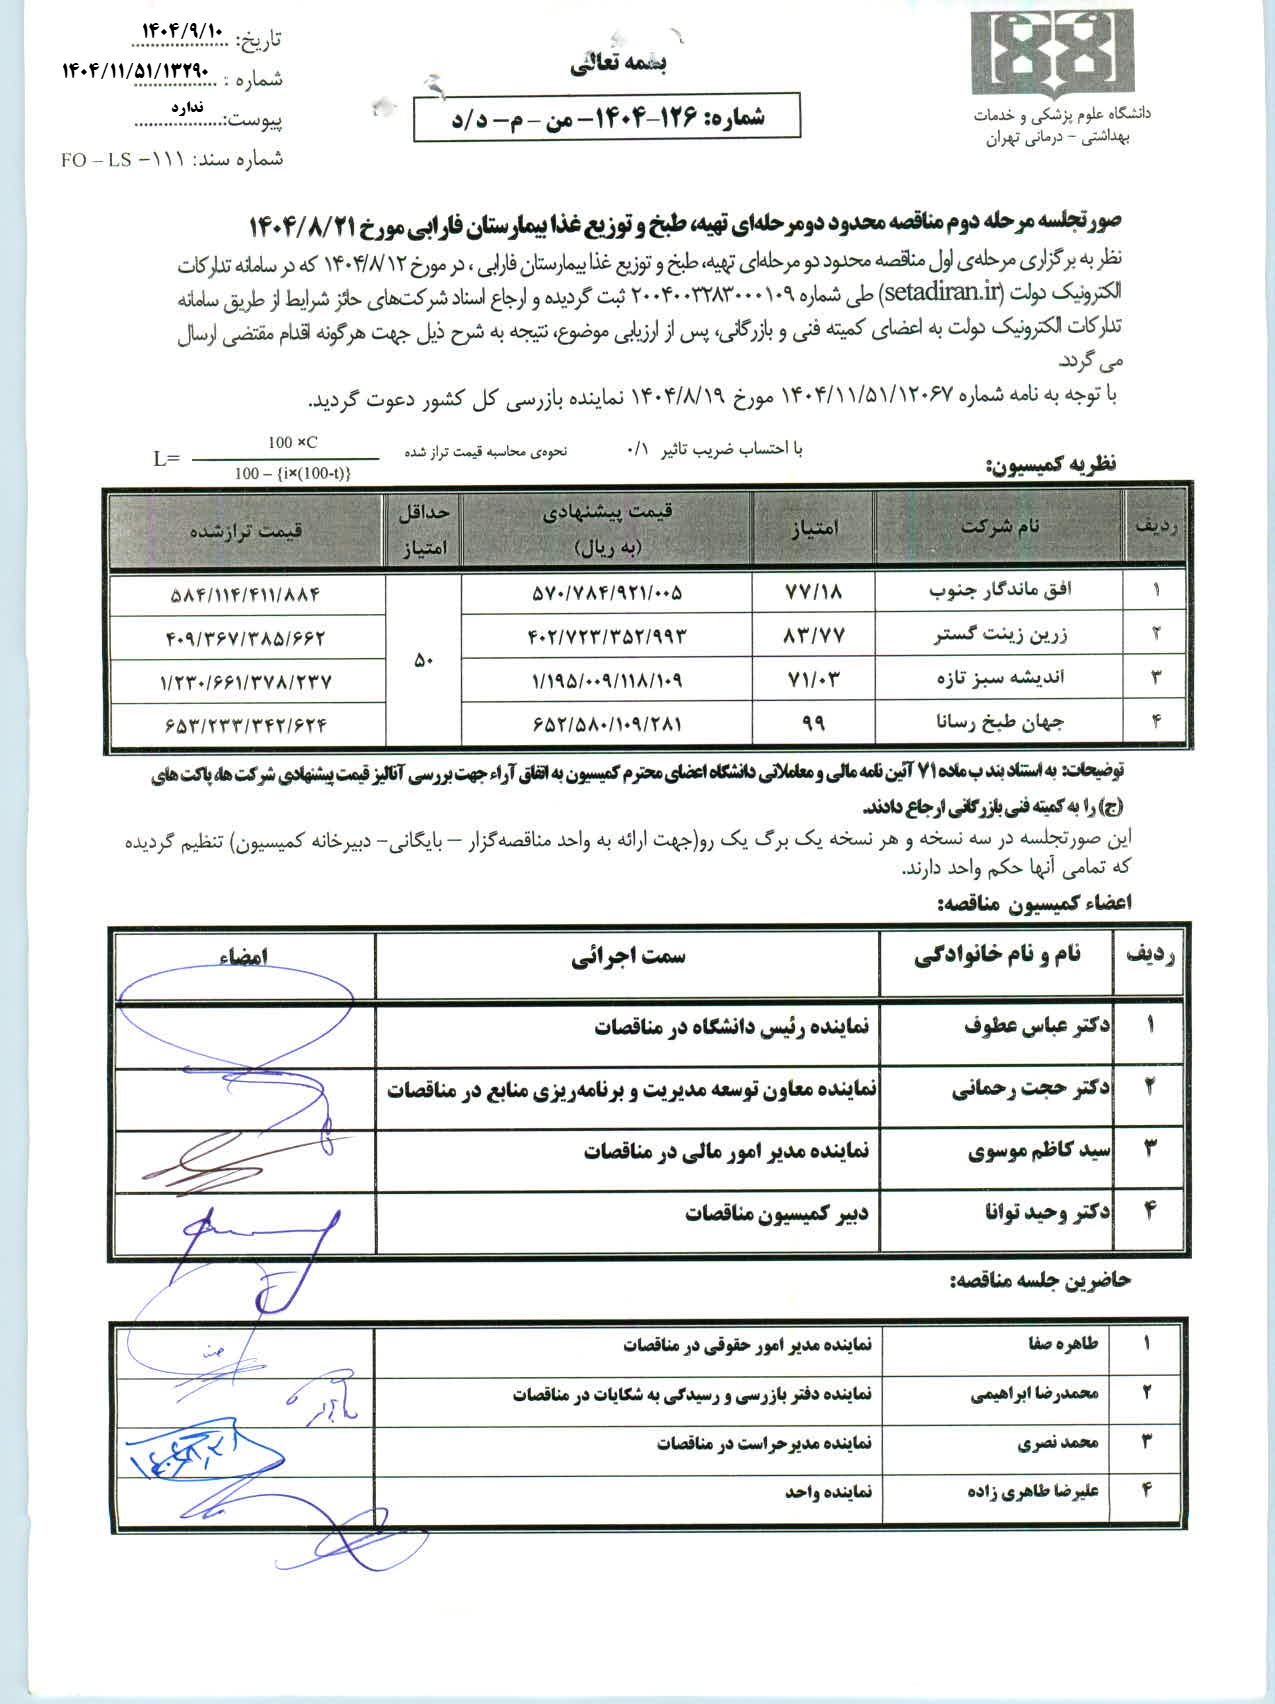 تاریخ: ۱۴۰۴/۹/۱۰
شماره : ۱۴۰۴/۱۱/۵۱/۱۳۲۹۰
پیوست: ندارد
شماره سند: ۱۱۱– FO – LS
بسمه تعالی
شماره: ۱۲۶-۱۴۰۴- من - م- د/د
دانشگاه علوم پزشکی و خدمات
بهداشتی - درمانی تهران
صورتجلسه مرحله دوم مناقصه محدود دومرحله‌ای تهیه، طبخ و توزیع غذا بیمارستان فارابی مورخ ۱۴۰۴/۸/۲۱
نظر به برگزاری مرحله‌ی اول مناقصه محدود دو مرحله‌ای تهیه، طبخ و توزیع غذا بیمارستان فارابی ، در مورخ ۱۴۰۴/۸/۱۲ که در سامانه تدارکات
الکترونیک دولت (setadiran.ir) طی شماره ۲۰۰۴۰۰۳۲۸۳۰۰۰۱۰۹ ثبت گردیده و ارجاع اسناد شرکت‌های حائز شرایط از طریق سامانه
تدارکات الکترونیک دولت به اعضای کمیته فنی و بازرگانی، پس از ارزیابی موضوع، نتیجه به شرح ذیل جهت هرگونه اقدام مقتضی ارسال
می گردد.
با توجه به نامه شماره ۱۴۰۴/۱۱/۵۱/۱۲۰۶۷ مورخ ۱۴۰۴/۸/۱۹ نماینده بازرسی کل کشور دعوت گردید.
نظریه کمیسیون: با احتساب ضریب تاثیر ۰/۱ نحوه‌ی محاسبه قیمت تراز شده
100 ×C
L=
100 – {i×(100-t)}
ردیف نام شرکت امتیاز قیمت پیشنهادی (به ریال) حداقل امتیاز قیمت ترازشده
۱ افق ماندگار جنوب ۷۷/۱۸ ۵۷۰/۷۸۴/۹۲۱/۰۰۵ ۵۸۴/۱۱۴/۴۱۱/۸۸۴
۲ زرین زینت گستر ۸۳/۷۷ ۴۰۲/۷۲۳/۳۵۲/۹۹۳ ۴۰۹/۳۶۷/۳۸۵/۶۶۲
۵۰
۳ اندیشه سبز تازه ۷۱/۰۳ ۱/۱۹۵/۰۰۹/۱۱۸/۱۰۹ ۱/۲۳۰/۶۶۱/۳۷۸/۲۳۷
۴ جهان طبخ رسانا ۹۹ ۶۵۲/۵۸۰/۱۰۹/۲۸۱ ۶۵۳/۲۳۳/۳۴۲/۶۲۴
توضیحات: به استناد بند ب ماده ۷۱ آئین نامه مالی و معاملاتی دانشگاه اعضای محترم کمیسیون به اتفاق آراء جهت بررسی آنالیز قیمت پیشنهادی شرکت ها، پاکت های
(ج) را به کمیته فنی بازرگانی ارجاع دادند.
این صورتجلسه در سه نسخه و هر نسخه یک برگ یک رو(جهت ارائه به واحد مناقصه‌گزار – بایگانی- دبیرخانه کمیسیون) تنظیم گردیده
که تمامی آنها حکم واحد دارند.
اعضاء کمیسیون مناقصه:
ردیف نام و نام خانوادگی سمت اجرائی امضاء
۱ دکتر عباس عطوف نماینده رئیس دانشگاه در مناقصات
۲ دکتر حجت رحمانی نماینده معاون توسعه مدیریت و برنامه‌ریزی منابع در مناقصات
۳ سید کاظم موسوی نماینده مدیر امور مالی در مناقصات
۴ دکتر وحید توانا دبیر کمیسیون مناقصات
حاضرین جلسه مناقصه:
۱ طاهره صفا نماینده مدیر امور حقوقی در مناقصات
۲ محمدرضا ابراهیمی نماینده دفتر بازرسی و رسیدگی به شکایات در مناقصات
۳ محمد نصری نماینده مدیرحراست در مناقصات
۴ علیرضا طاهری زاده نماینده واحد